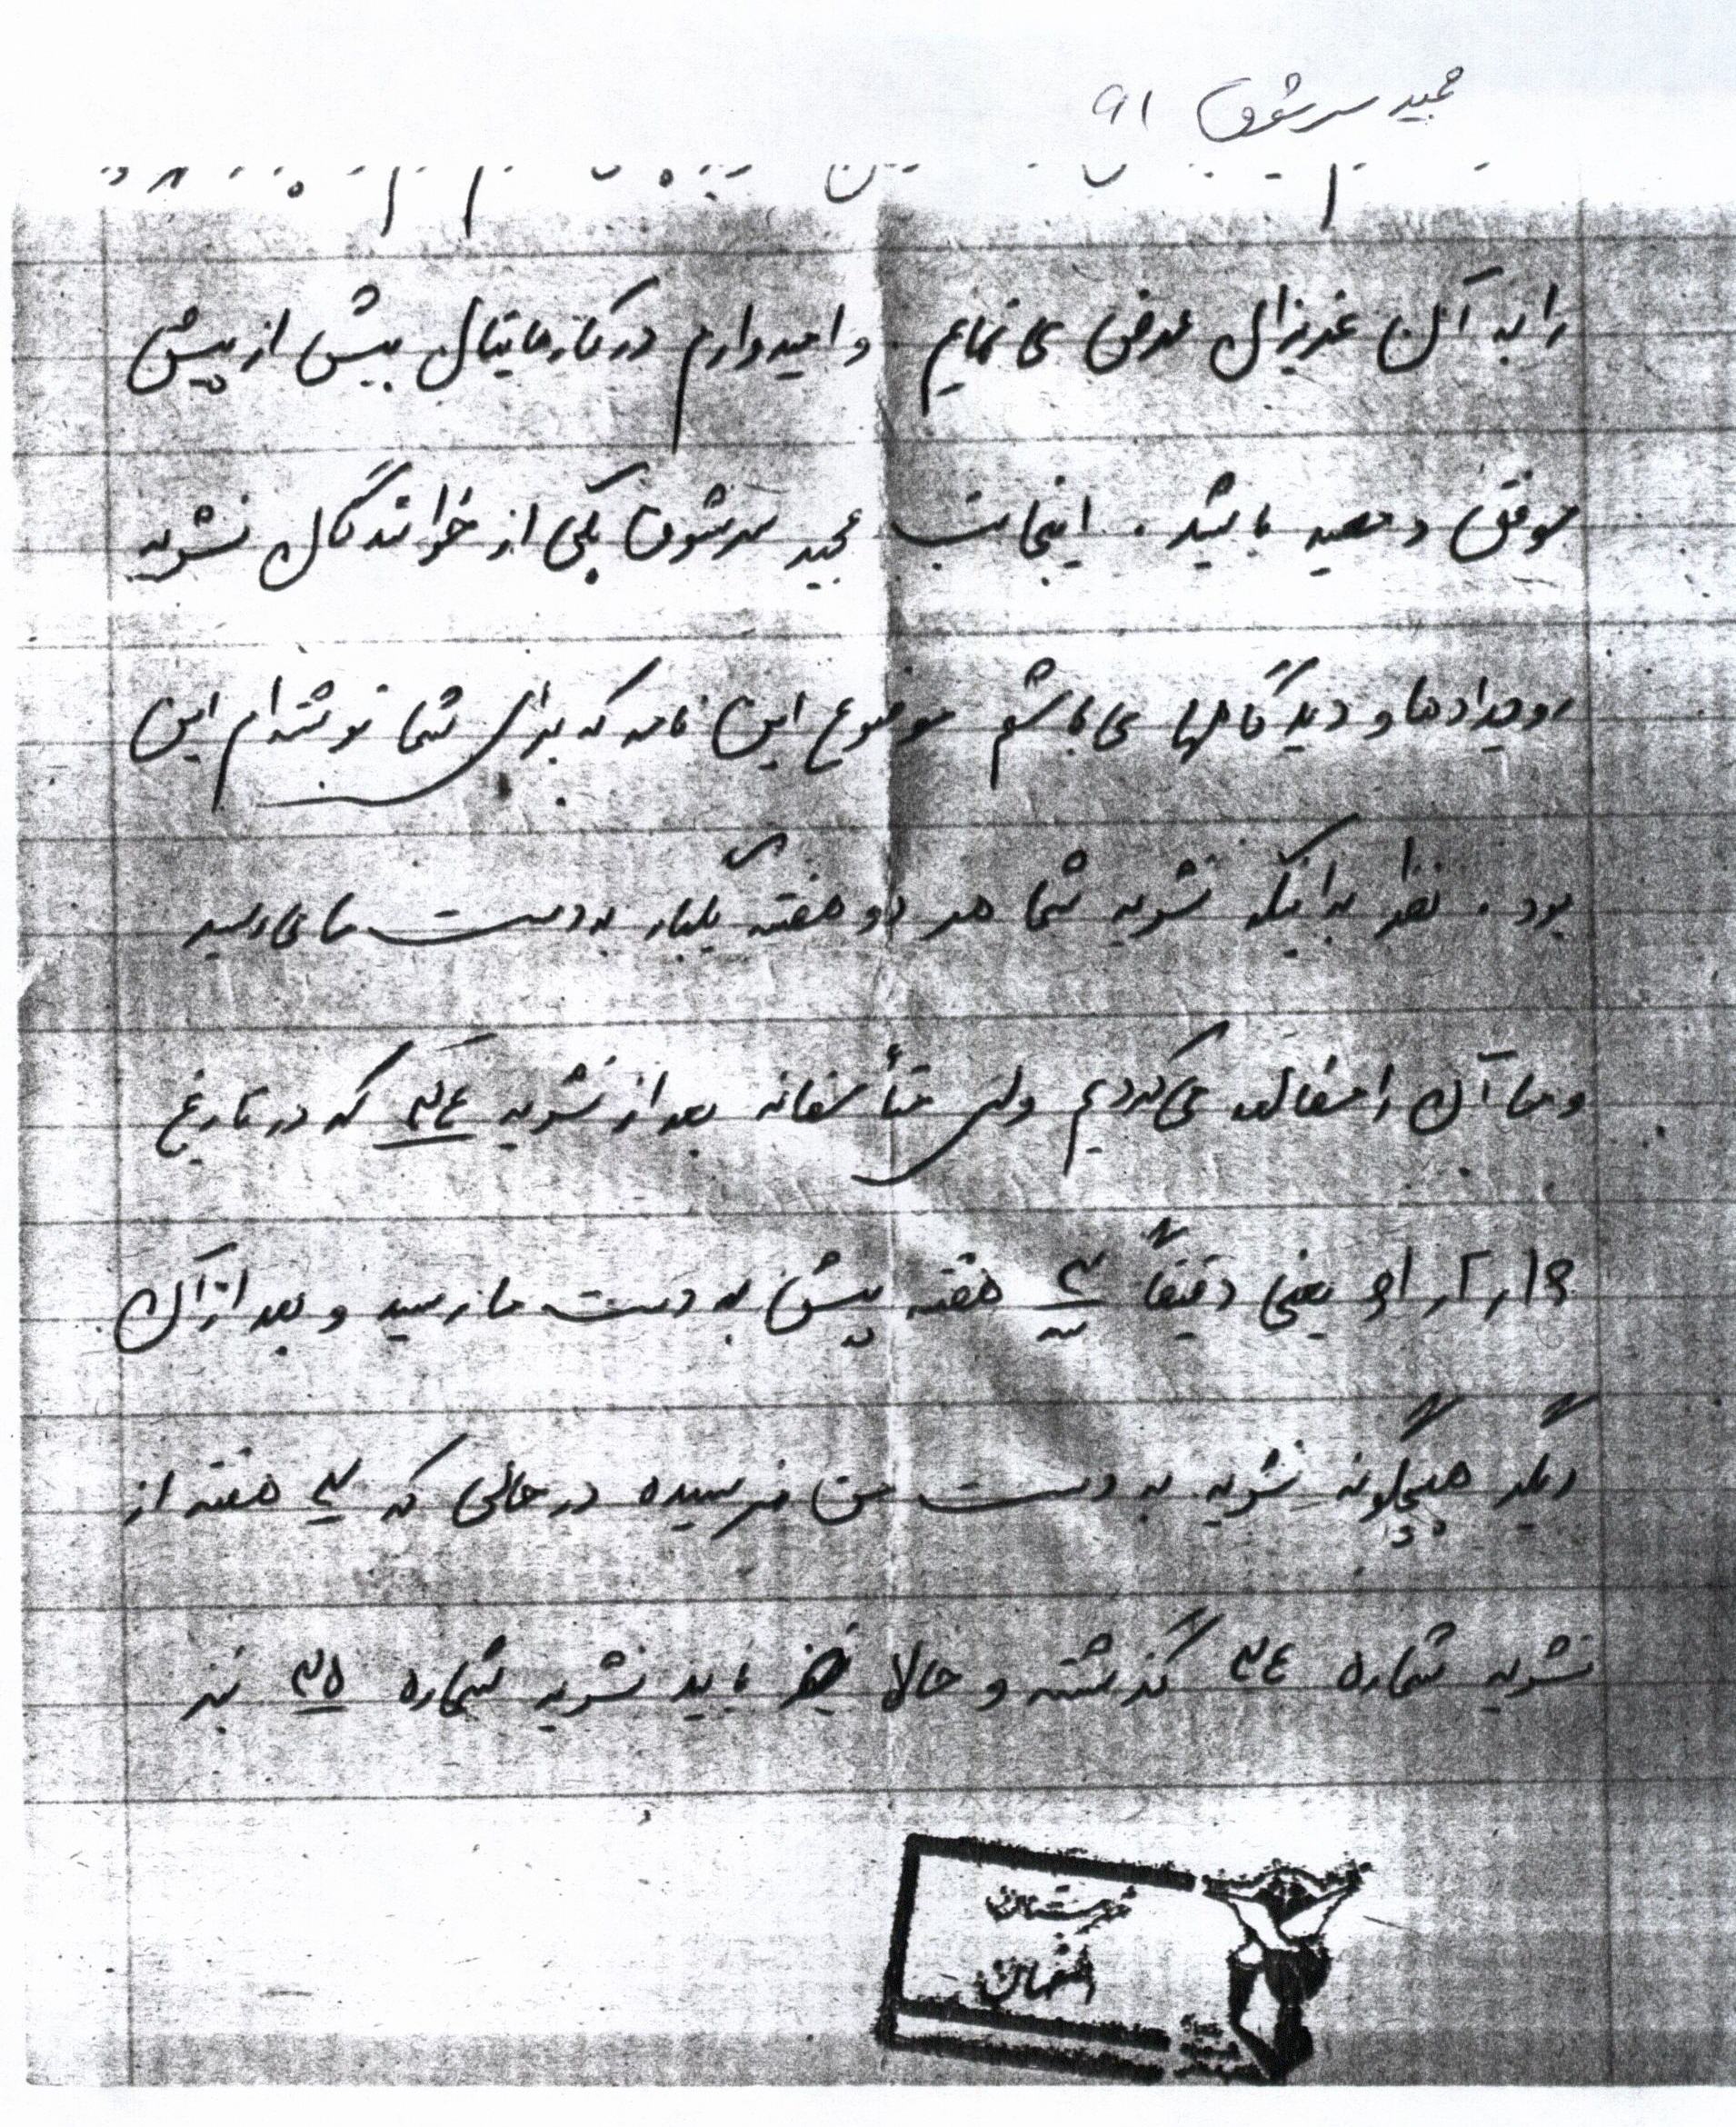 مجید سرشوق ۹۱
را به آن عزیزان عرض می نمایم . و امیدوارم در کارهایتان بیش از پیش
موفق و مصید باشید . اینجانب مجید سرشوق یکی از خوانندگان نشریه
رویدادها و دیدگاهها می باشم موضوع این نامه که برای شما نوشته ام این
بود . نظر به اینکه نشریه شما هر دو هفته یکبار به دست ما می رسید
و ما آن را مطالعه می کردیم ولی متأسفانه بعد از نشریه ۳۴ که در تاریخ
یعنی دقیقاً ۳ هفته پیش به دست ما رسید و بعد از آن
دیگر هیچگونه نشریه به دست من نرسیده در حالی که ۳ هفته از
نشریه شماره ۳۴ گذشته و حالا باید نشریه شماره ۳۵ نیز